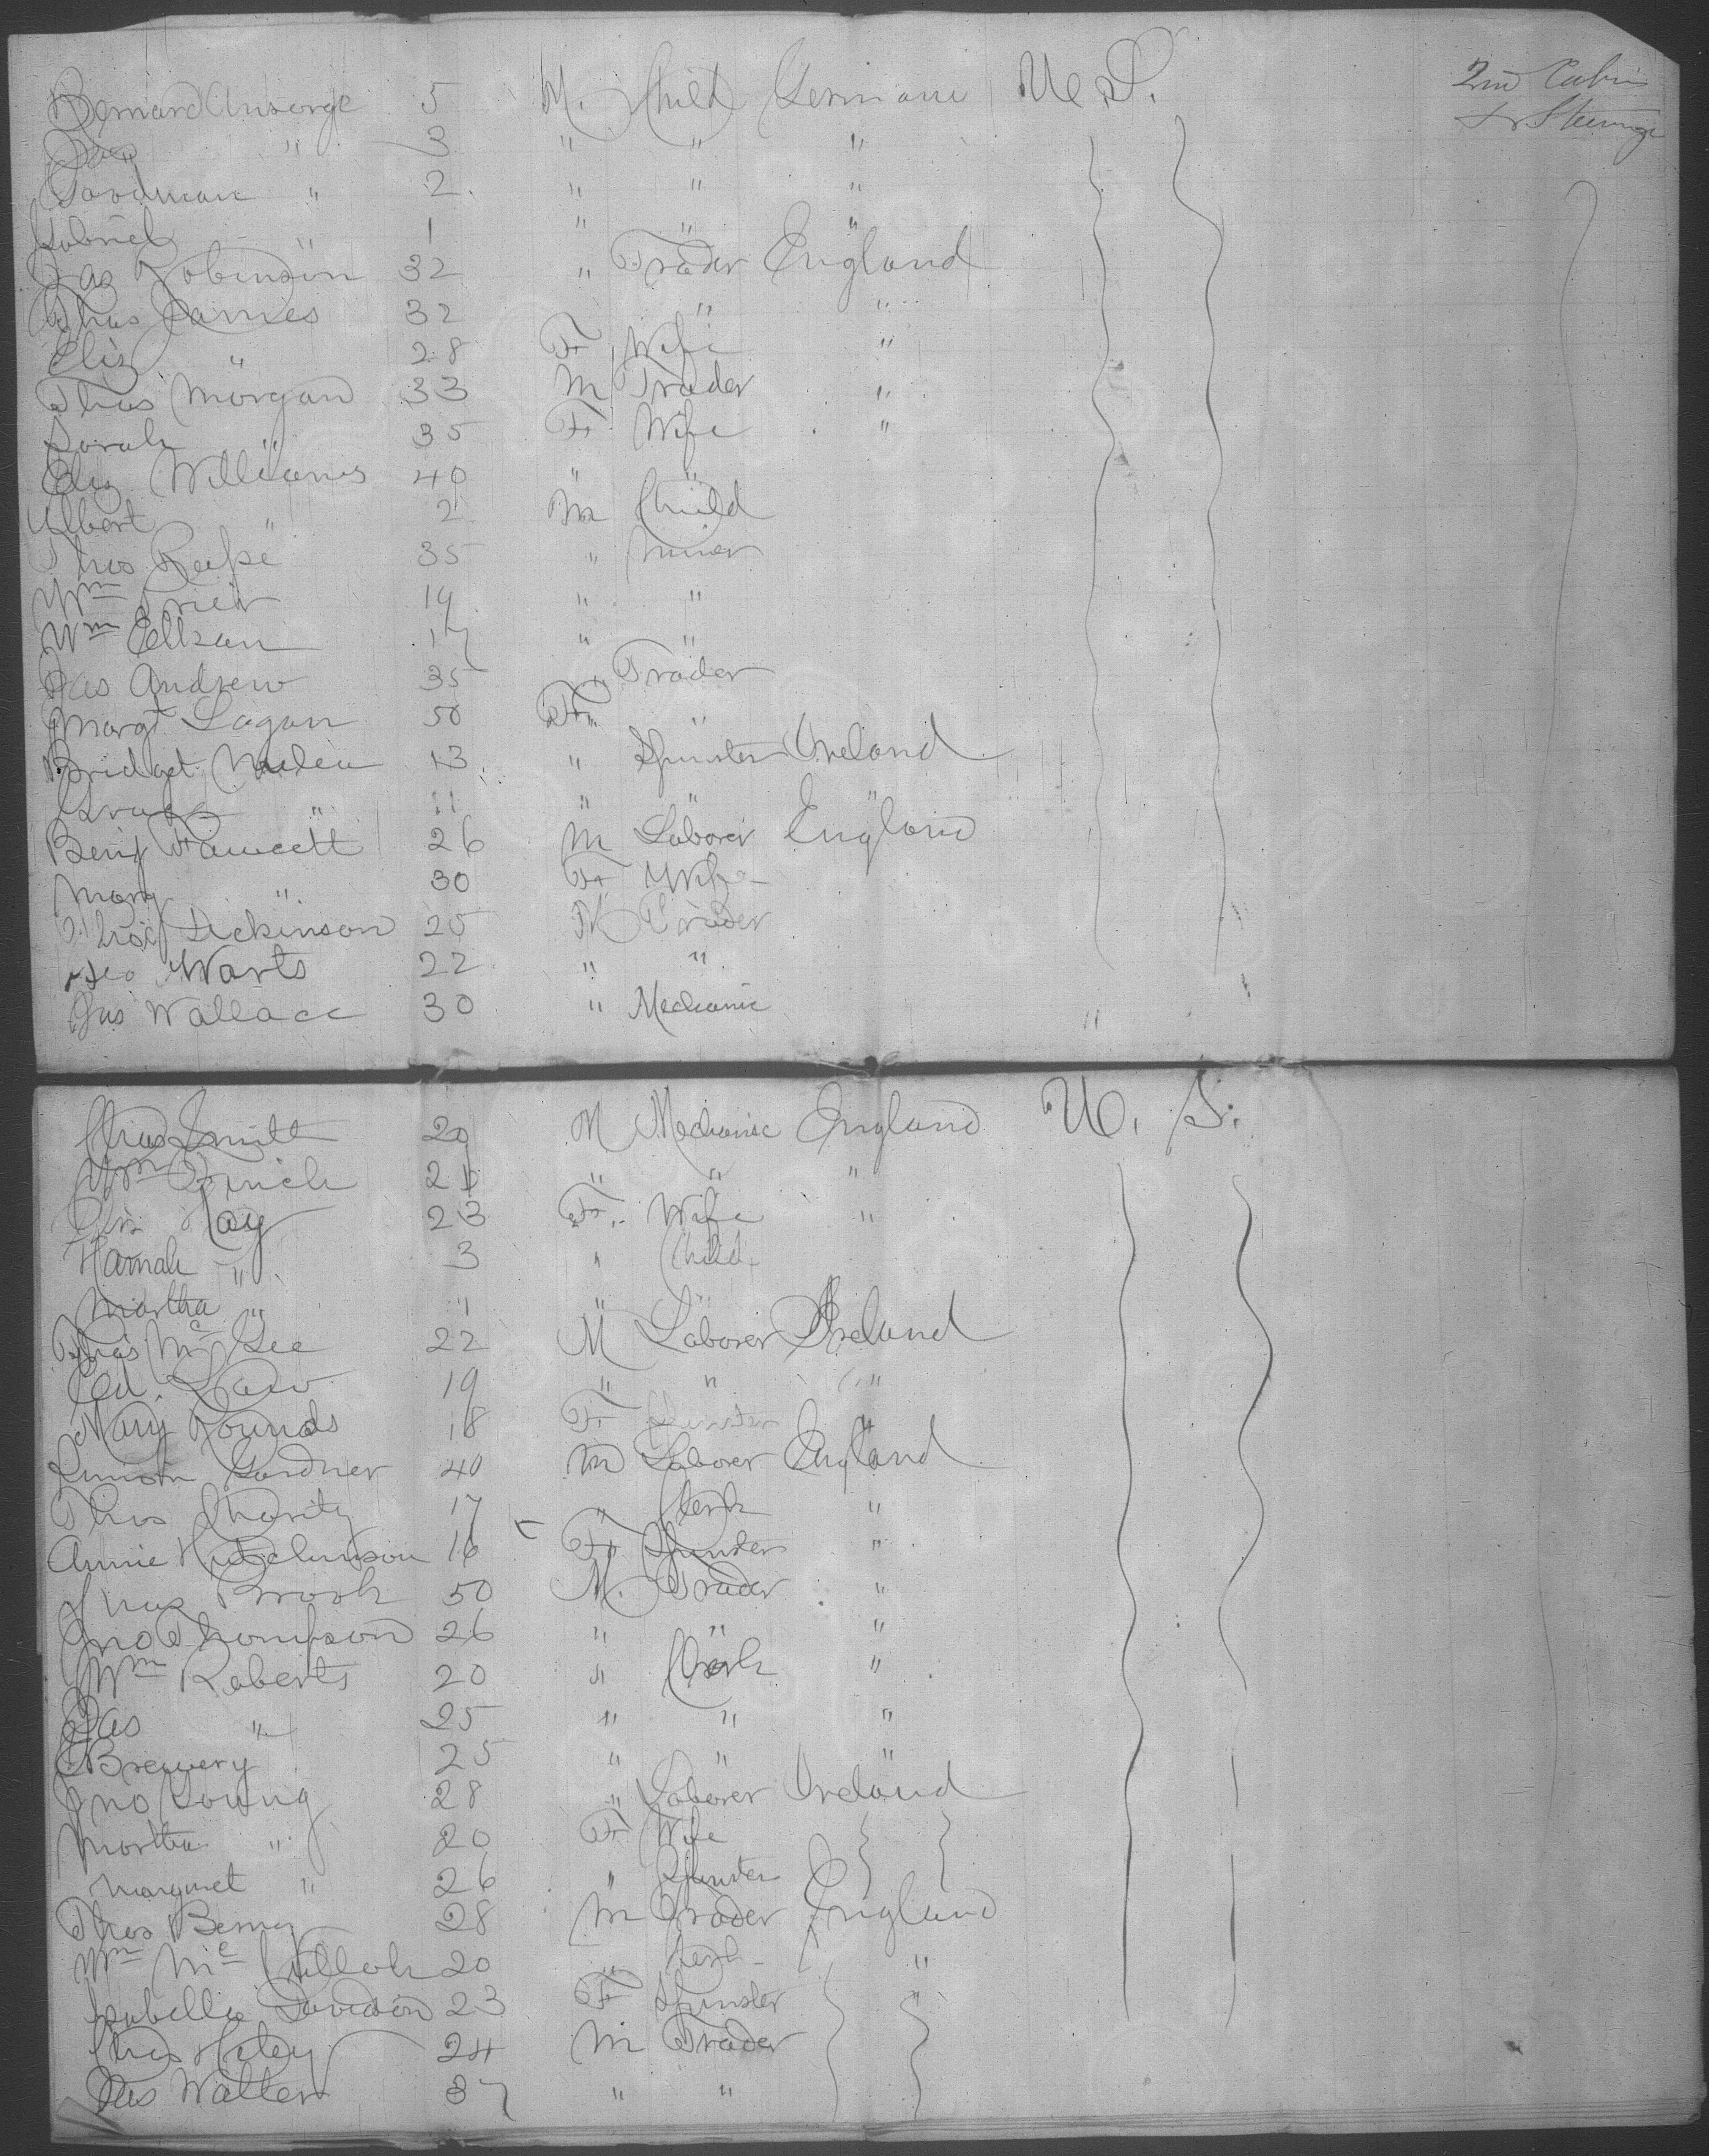 Bernard Ansorge 5 M. Child Germany U.S. 2nd Cabin
" 3 " " " & Steerage
" 2 " " "
Gabriel " 1 " " "
Jas Robinson 32 " Trader England
Thos James 32 " "
Eliz " 28 F Wife "
Thos Morgan 33 M Trader "
Sarah " 35 F Wife "
Eliz Williams 40 " "
Albert " 2 M Child
Thos 35 " Miner
Wm 19 " "
Wm 17 " "
Jas Andrew 35 " Trader
Margt Logan 50 F "
Bridget 13 " Spinster Ireland
" 11 " " "
Benj Fawcett 26 M Laborer England
Mary " 30 F Wife
Dickinson 25 M Trader
Geo Warts 22 " "
Jas Wallace 30 " Mechanic "
Chas Smith 29 M Mechanic England U. S.
Wm 21 " " "
Eliz Hay 23 F Wife "
Hannah " 3 " Child
Martha " 11 " "
Thos Mc Gee 22 M Laborer Ireland
Ed. 19 " " "
Mary Rounds 18 F Spinster "
Gardner 40 M Laborer England
Thos Charity 17 " Clerk "
Annie Hutchinson 16 F Spinster "
Chas Brook 50 M. Trader "
Jno Thompson 26 " " "
Wm Roberts 20 " Clerk "
Jas " 25 " " "
Brewery 25 " " "
Jno Young 28 " Laborer Ireland
Martha " 20 F Wife
Margaret " 26 " Spinster
Thos Berry 28 M Trader England
Wm Mc Culloh 20 " Clerk "
Isabella Davidson 23 F Spinster "
Chas Haley 24 M Trader
Jas Walter 37 " "